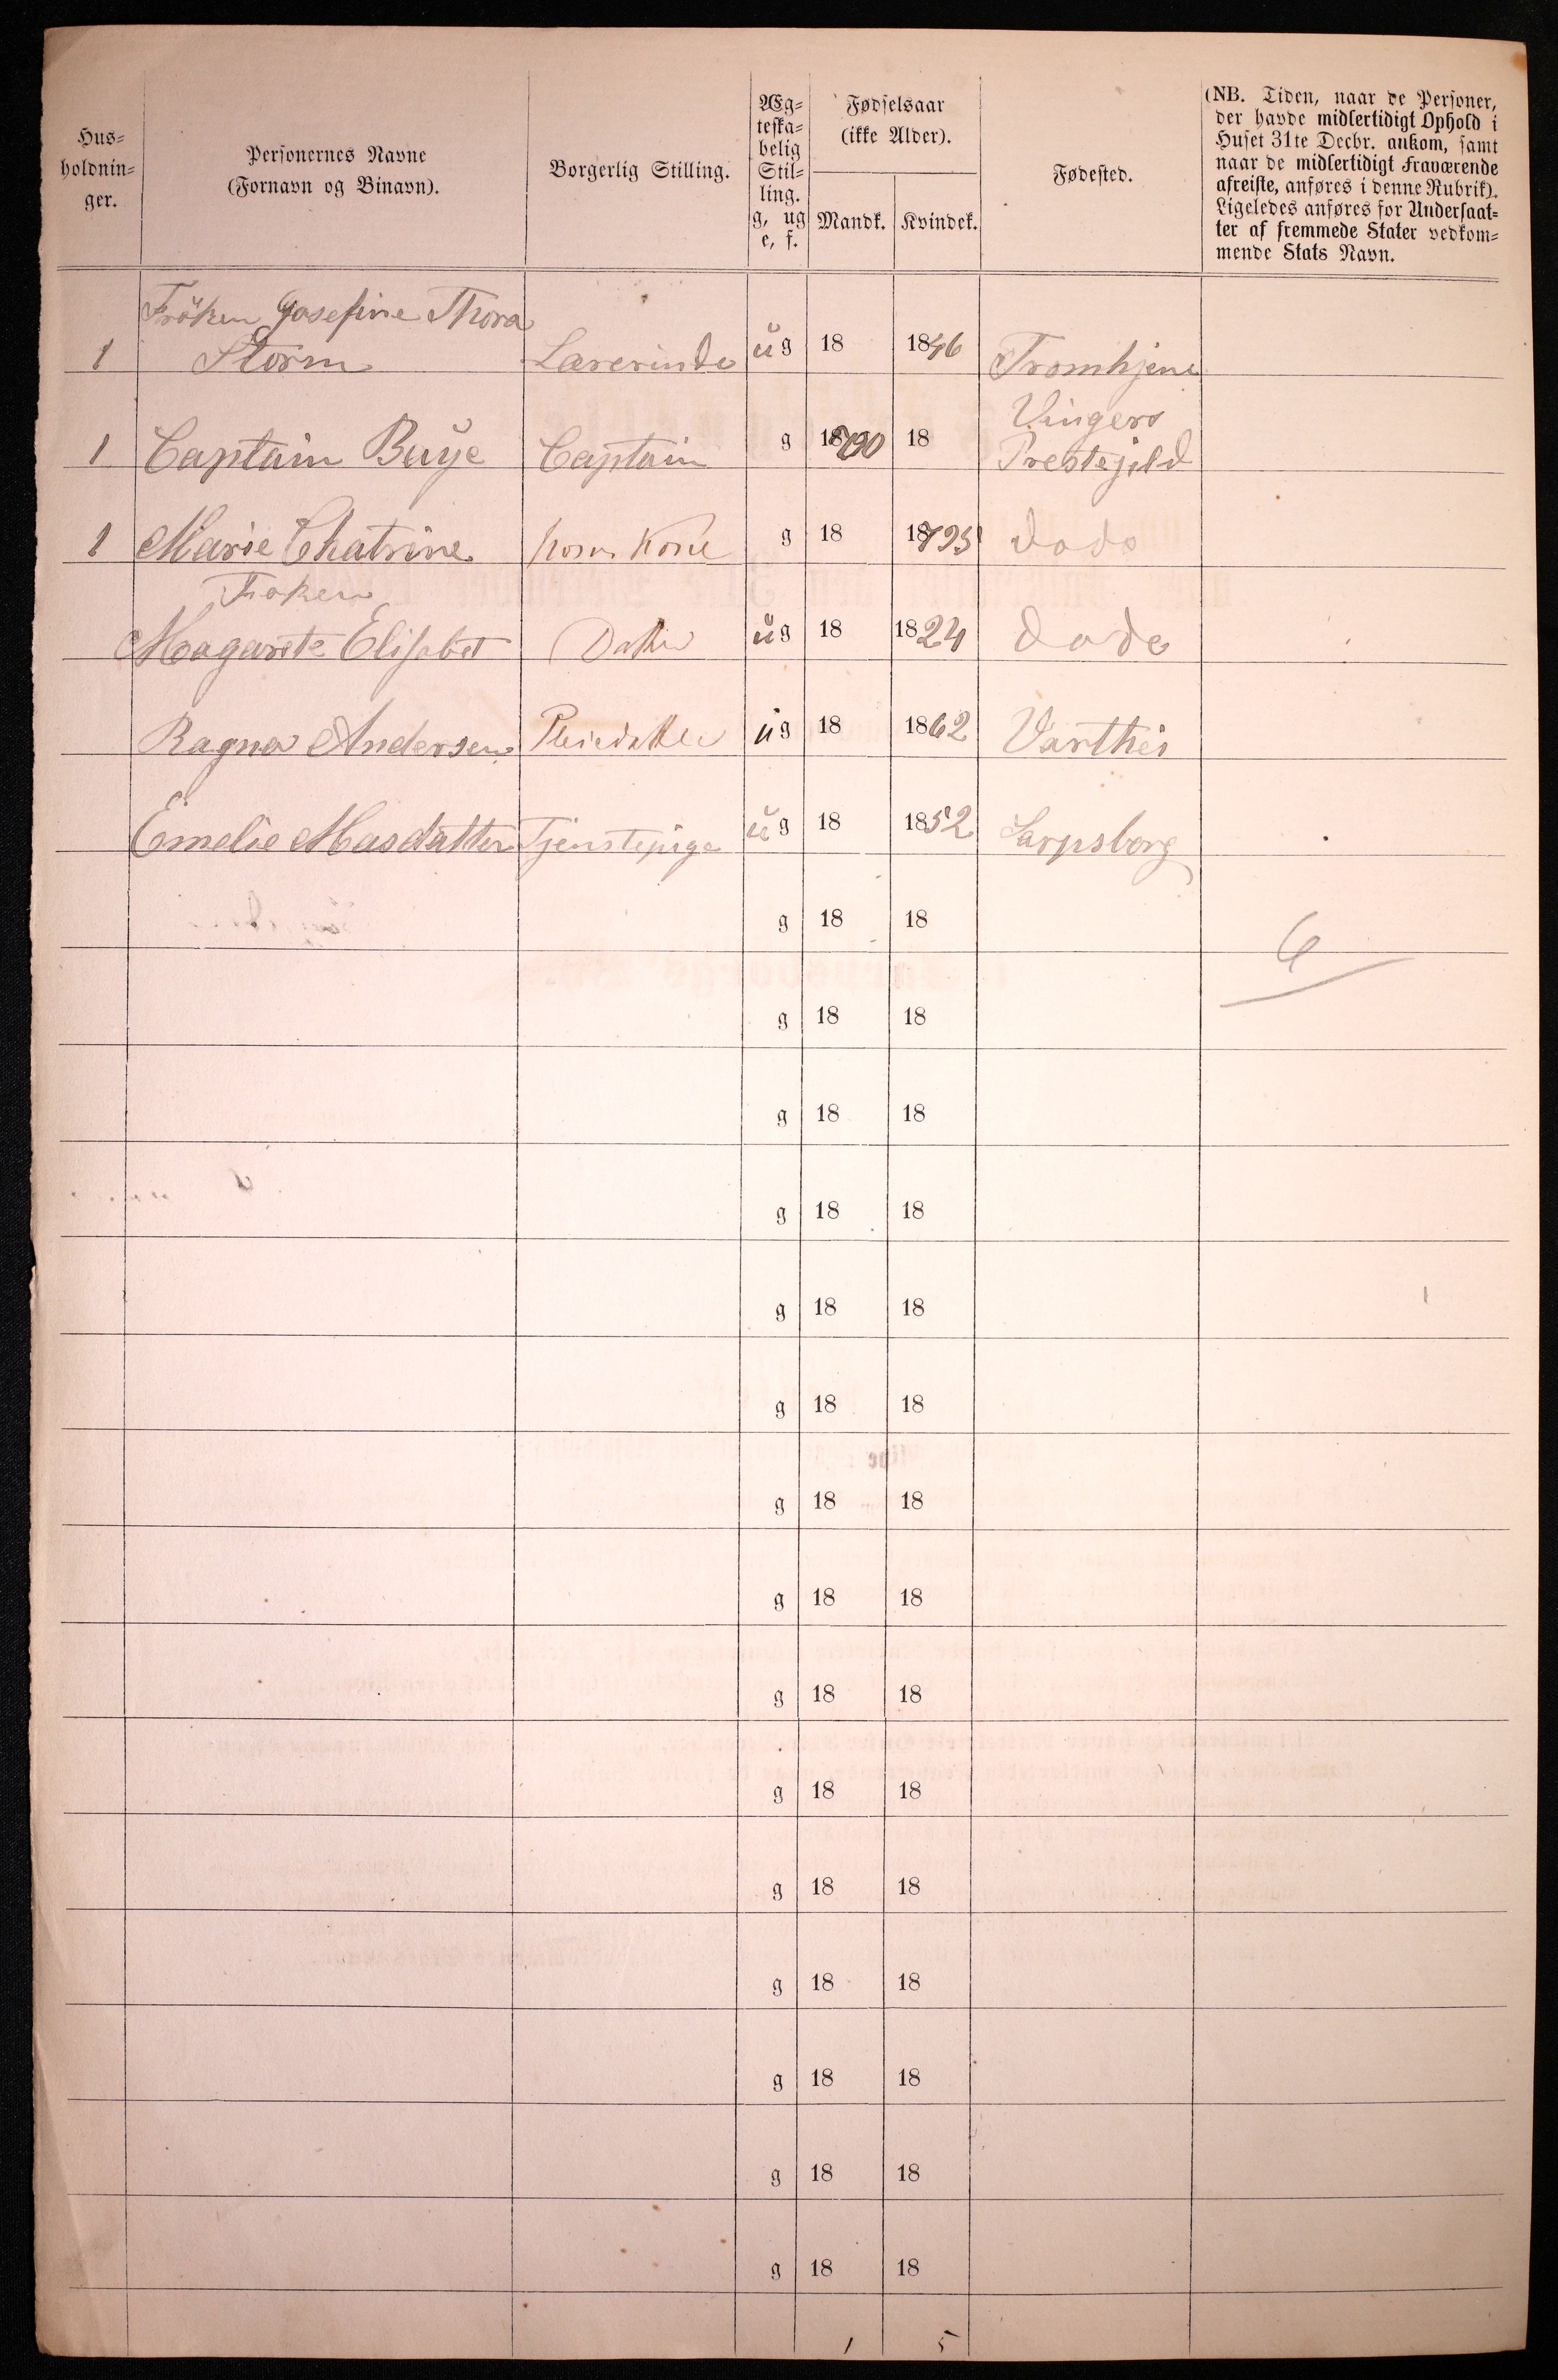 Hus-
holdnin-
ger.
Personernes Navne
(Fornavn og Binavn).
Borgerlig Stilling.
Æg-
teska-
belig
Stil-
ling.
g, ug
e, f.
Fødselsaar
(ikke Alder).
Mandk. Kvindek.
Fødested.
(NB. Tiden, naar de Personer,
der havde midlertidigt Ophold i
Huset 31te Decbr. ankom, samt
naar de midlertidigt Fraværende
afreiste, anføres i denne Rubrik).
Ligeledes anføres for Undersaat-
ter af fremmede Stater vedkom-
mende Stats Navn.
Fröken Josefine Thora
1 Storm Lærerinde ug 18 1846 Tromhjene
Vingers
1 Captain Buye Captain g 1790 18 Prestejeld
1 Marie Chatrine Kone g 18 1795 dodo
Froken
Magarete Elisabet Datter ug 18 1824 dode
Ragna Andersen Pleiedatter ug 18 1862 Varthei
Emelie Masdatter Tjenstepige ug 18 1852 Sarpsborg
g 18 18
6
g 18 18
g 18 18
g 18 18
g 18 18
g 18 18
g 18 18
g 18 18
g 18 18
g 18 18
g 18 18
g 18 18
g 18 18
g 18 18
g 18 18
1 5